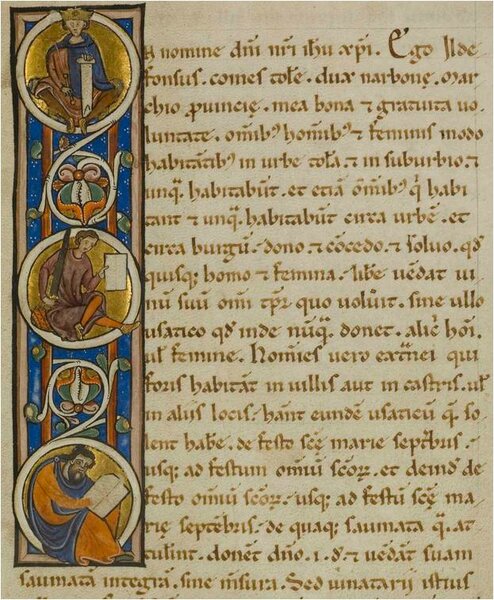 n nomine dni nri ihu xpi. Ego Ilde
fonsus. comes tolose. dux narbone. mar
chio provincie. mea bona & gratuita vo
luntate. omnib; homib; & feminis modo
habitatib; in urbe tolosa & in suburbio. &
unq. habitabut. et etia omib; q habi
tant & unq. habitabunt circa urbe. et
circa burgu. dono & cocedo. & solvo. qd
quisq; homo & femina. libe vedat vi
nu suu omi tpr quo voluit. sine ullo
usatico qd inde nuq. donet. alic hoi.
ul femine. Homies vero extnei qui
foris habitat in villis aut in castris. ul
in aliis locis. hant eunde usaticu q. so
lent habe. de festo sce marie septebus.
usq; ad festum omiu scor. et deind de
festo omiu scor. usq; ad festu sce ma
rie septebris. de quaq; saumata q. at
tulint. donet dno. i. d. & vedat suam
saumata integra. sine msura. Sed vinatarii istius